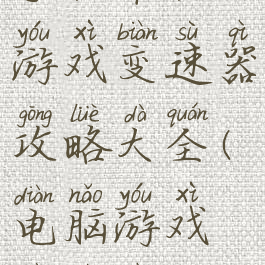 yóu xì biàn sù qì
游戏变速器
gōng lüè dà quán
攻略大全(
diàn nǎo yóu xì
电脑游戏